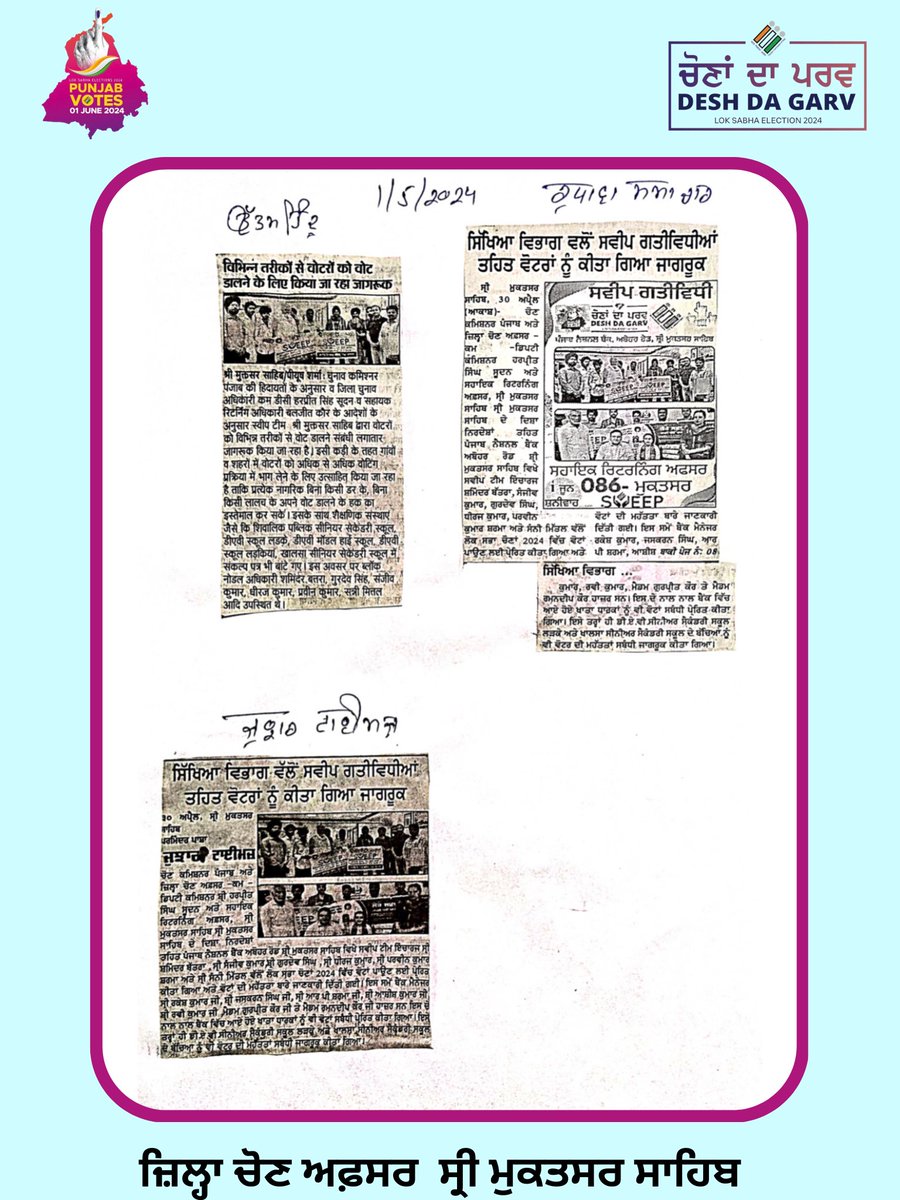 LOK SABHA ELECTIONS 2024
PUNJAB
VOTES
01 JUNE 2024
ਚੋਣਾਂ ਦਾ ਪਰਵ
DESH DA GARV
LOK SABHA ELECTION 2024
1/5/2024
ਉੱਤਮ ਹਿੰਦੂ
विभिन्न तरीकों से वोटरों को वोट
डालने के लिए किया जा रहा जागरूक
SWEEP
श्री मुक्तसर साहिब/पीयूष शर्मा: चुनाव कमिश्नर
पंजाब की हिदायतों के अनुसार व जिला चुनाव
अधिकारी कम डीसी हरप्रीत सिंह सूदन व सहायक
रिटर्निंग अधिकारी बलजीत कौर के आदेशों के
अनुसार स्वीप टीम श्री मुक्तसर साहिब द्वारा वोटरों
को विभिन्न तरीकों से वोट डालने संबंधी लगातार
जागरूक किया जा रहा है। इसी कड़ी के तहत गांवों
व शहरों में वोटरों को अधिक से अधिक वोटिंग
प्रक्रिया में भाग लेने के लिए उत्साहित किया जा रहा
है ताकि प्रत्येक नागरिक बिना किसी डर के, बिना
किसी लालच के अपने वोट डालने के हक का
इस्तेमाल कर सके। इसके साथ शैक्षणिक संस्थाएं
जैसे कि शिवालिक पब्लिक सीनियर सेकेंडरी स्कूल,
डीएवी स्कूल लड़के, डीएवी मॉडल हाई स्कूल, डीएवी
स्कूल लड़कियां, खालसा सीनियर सेकेंडरी स्कूल में
संकल्प पत्र भी बांटे गए। इस अवसर पर ब्लॉक
नोडल अधिकारी शमिंदर बत्तरा, गुरदेव सिंह, संजीव
कुमार, धीरज कुमार, प्रवीन कुमार, सन्नी मित्तल
आदि उपस्थित थे।
ਸਿੱਖਿਆ ਵਿਭਾਗ ਵਲੋਂ ਸਵੀਪ ਗਤੀਵਿਧੀਆਂ
ਤਹਿਤ ਵੋਟਰਾਂ ਨੂੰ ਕੀਤਾ ਗਿਆ ਜਾਗਰੂਕ
ਸ੍ਰੀ ਮੁਕਤਸਰ
ਸਾਹਿਬ, 30 ਅਪ੍ਰੈਲ
(ਆਕਾਬ)- ਚੋਣ
ਕਮਿਸ਼ਨਰ ਪੰਜਾਬ ਅਤੇ
ਜ਼ਿਲ੍ਹਾ ਚੋਣ ਅਫ਼ਸਰ -
ਕਮ -ਡਿਪਟੀ
ਕਮਿਸ਼ਨਰ ਹਰਪ੍ਰੀਤ
ਸਿੰਘ ਸੂਦਨ ਅਤੇ
ਸਹਾਇਕ ਰਿਟਰਨਿੰਗ
ਅਫ਼ਸਰ, ਸ੍ਰੀ ਮੁਕਤਸਰ
ਸਾਹਿਬ ਸ੍ਰੀ ਮੁਕਤਸਰ
ਸਾਹਿਬ ਦੇ ਦਿਸ਼ਾ
ਨਿਰਦੇਸ਼ਾਂ ਤਹਿਤ
ਪੰਜਾਬ ਨੈਸ਼ਨਲ ਬੈਂਕ
ਅਬੋਹਰ ਰੋਡ ਸ੍ਰੀ
ਮੁਕਤਸਰ ਸਾਹਿਬ ਵਿਖੇ
ਸਵੀਪ ਟੀਮ ਇੰਚਾਰਜ
ਸ਼ਮਿੰਦਰ ਬੱਤਰਾ, ਸੰਜੀਵ
ਕੁਮਾਰ, ਗੁਰਦੇਵ ਸਿੰਘ,
ਧੀਰਜ ਕੁਮਾਰ, ਪਰਵੀਨ
ਕੁਮਾਰ ਸ਼ਰਮਾ ਅਤੇ ਸੰਨੀ ਮਿੱਤਲ ਵੱਲੋਂ
ਲੋਕ ਸਭਾ ਚੋਣਾਂ 2024 ਵਿੱਚ ਵੋਟਾਂ
ਪਾਉਣ ਲਈ ਪ੍ਰੇਰਿਤ ਕੀਤਾ ਗਿਆ ਅਤੇ
ਸਵੀਪ ਗਤੀਵਿਧੀ
ਚੋਣਾਂ ਦਾ ਪਰਵ
DESH DA GARV
ਪੰਜਾਬ ਨੈਸ਼ਨਲ ਬੈਂਕ, ਅਬੋਹਰ ਰੋਡ, ਸ੍ਰੀ ਮੁਕਤਸਰ ਸਾਹਿਬ
ਸਹਾਇਕ ਰਿਟਰਨਿੰਗ ਅਫਸਰ
1 ਜੂਨ
086- ਮੁਕਤਸਰ
SWEEP
ਵੋਟਾਂ ਦੀ ਮਹੱਤਤਾ ਬਾਰੇ ਜਾਣਕਾਰੀ
ਦਿੱਤੀ ਗਈ। ਇਸ ਸਮੇਂ ਬੈਂਕ ਮੈਨੇਜਰ
ਰਕੇਸ਼ ਕੁਮਾਰ, ਜਸਕਰਨ ਸਿੰਘ, ਆਰ
ਪੀ ਸ਼ਰਮਾ, ਆਸ਼ੀਸ਼ ਬਾਕੀ ਪੇਜ ਨੰ: 08
ਸਿੱਖਿਆ ਵਿਭਾਗ ...
ਕੁਮਾਰ, ਰਵੀ ਕੁਮਾਰ, ਮੈਡਮ ਗੁਰਪ੍ਰੀਤ ਕੌਰ ਤੇ ਮੈਡਮ
ਰਮਨਦੀਪ ਕੌਰ ਹਾਜ਼ਰ ਸਨ। ਇਸ ਦੇ ਨਾਲ ਨਾਲ ਬੈਂਕ ਵਿੱਚ
ਆਏ ਹੋਏ ਖਾਤਾ ਧਾਰਕਾਂ ਨੂੰ ਵੀ ਵੋਟਾਂ ਸਬੰਧੀ ਪ੍ਰੇਰਿਤ ਕੀਤਾ
ਗਿਆ। ਇਸੇ ਤਰ੍ਹਾਂ ਹੀ ਡੀ.ਏ.ਵੀ ਸੀਨੀਅਰ ਸੈਕੰਡਰੀ ਸਕੂਲ
ਲੜਕੇ ਅਤੇ ਖਾਲਸਾ ਸੀਨੀਅਰ ਸੈਕੰਡਰੀ ਸਕੂਲ ਦੇ ਬੱਚਿਆਂ ਨੂੰ
ਵੀ ਵੋਟਰ ਦੀ ਮਹੱਤਤਾ ਸਬੰਧੀ ਜਾਗਰੂਕ ਕੀਤਾ ਗਿਆ।
ਜੁਝਾਰ ਟਾਈਮਜ਼
ਸਿੱਖਿਆ ਵਿਭਾਗ ਵੱਲੋਂ ਸਵੀਪ ਗਤੀਵਿਧੀਆਂ
ਤਹਿਤ ਵੋਟਰਾਂ ਨੂੰ ਕੀਤਾ ਗਿਆ ਜਾਗਰੂਕ
੩੦ ਅਪ੍ਰੈਲ, ਸ੍ਰੀ ਮੁਕਤਸਰ
ਸਾਹਿਬ
ਪਰਮਿੰਦਰ ਪਾਸ਼ਾ
ਜੁਝਾਰ ਟਾਈਮਜ਼
ਚੋਣ ਕਮਿਸ਼ਨਰ ਪੰਜਾਬ ਅਤੇ
ਜ਼ਿਲ੍ਹਾ ਚੋਣ ਅਫ਼ਸਰ -ਕਮ -
ਡਿਪਟੀ ਕਮਿਸ਼ਨਰ ਸ੍ਰੀ ਹਰਪ੍ਰੀਤ
ਸਿੰਘ ਸੂਦਨ ਅਤੇ ਸਹਾਇਕ
ਰਿਟਰਨਿੰਗ ਅਫ਼ਸਰ, ਸ੍ਰੀ
ਮੁਕਤਸਰ ਸਾਹਿਬ ਸ੍ਰੀ ਮੁਕਤਸਰ
ਸਾਹਿਬ ਦੇ ਦਿਸ਼ਾ ਨਿਰਦੇਸ਼ਾਂ
ਤਹਿਤ ਪੰਜਾਬ ਨੈਸ਼ਨਲ ਬੈਂਕ ਅਬੋਹਰ ਰੋਡ ਸ੍ਰੀ ਮੁਕਤਸਰ ਸਾਹਿਬ ਵਿਖੇ ਸਵੀਪ ਟੀਮ ਇੰਚਾਰਜ ਸ੍ਰੀ
ਸ਼ਮਿੰਦਰ ਬੱਤਰਾ, ਸ੍ਰੀ ਸੰਜੀਵ ਕੁਮਾਰ, ਸ੍ਰੀ ਗੁਰਦੇਵ ਸਿੰਘ, ਸ੍ਰੀ ਧੀਰਜ ਕੁਮਾਰ, ਸ੍ਰੀ ਪਰਵੀਨ ਕੁਮਾਰ
ਸ਼ਰਮਾ ਅਤੇ ਸ੍ਰੀ ਸੰਨੀ ਮਿੱਤਲ ਵੱਲੋਂ ਲੋਕ ਸਭਾ ਚੋਣਾਂ 2024 ਵਿੱਚ ਵੋਟਾਂ ਪਾਉਣ ਲਈ ਪ੍ਰੇਰਿਤ
ਕੀਤਾ ਗਿਆ ਅਤੇ ਵੋਟਾਂ ਦੀ ਮਹੱਤਤਾ ਬਾਰੇ ਜਾਣਕਾਰੀ ਦਿੱਤੀ ਗਈ। ਇਸ ਸਮੇਂ ਬੈਂਕ ਮੈਨੇਜਰ
ਸ੍ਰੀ ਰਕੇਸ਼ ਕੁਮਾਰ ਜੀ, ਸ੍ਰੀ ਜਸਕਰਨ ਸਿੰਘ ਜੀ, ਸ੍ਰੀ ਆਰ ਪੀ ਸ਼ਰਮਾ ਜੀ, ਸ੍ਰੀ ਆਸ਼ੀਸ਼ ਕੁਮਾਰ ਜੀ,
ਸ੍ਰੀ ਰਵੀ ਕੁਮਾਰ ਜੀ, ਮੈਡਮ ਗੁਰਪ੍ਰੀਤ ਕੌਰ ਜੀ ਤੇ ਮੈਡਮ ਰਮਨਦੀਪ ਕੌਰ ਜੀ ਹਾਜ਼ਰ ਸਨ ਇਸ ਦੇ
ਨਾਲ ਨਾਲ ਬੈਂਕ ਵਿੱਚ ਆਏ ਹੋਏ ਖਾਤਾ ਧਾਰਕਾਂ ਨੂੰ ਵੀ ਵੋਟਾਂ ਸਬੰਧੀ ਪ੍ਰੇਰਿਤ ਕੀਤਾ ਗਿਆ।ਇਸੇ
ਤਰ੍ਹਾਂ ਹੀ ਡੀ.ਏ.ਵੀ ਸੀਨੀਅਰ ਸੈਕੰਡਰੀ ਸਕੂਲ ਲੜਕੇ ਅਤੇ ਖਾਲਸਾ ਸੀਨੀਅਰ ਸੈਕੰਡਰੀ ਸਕੂਲ
ਦੇ ਬੱਚਿਆਂ ਨੂੰ ਵੀ ਵੋਟਰ ਦੀ ਮਹੱਤਤਾ ਸਬੰਧੀ ਜਾਗਰੂਕ ਕੀਤਾ ਗਿਆ।
ਜ਼ਿਲ੍ਹਾ ਚੋਣ ਅਫ਼ਸਰ ਸ੍ਰੀ ਮੁਕਤਸਰ ਸਾਹਿਬ